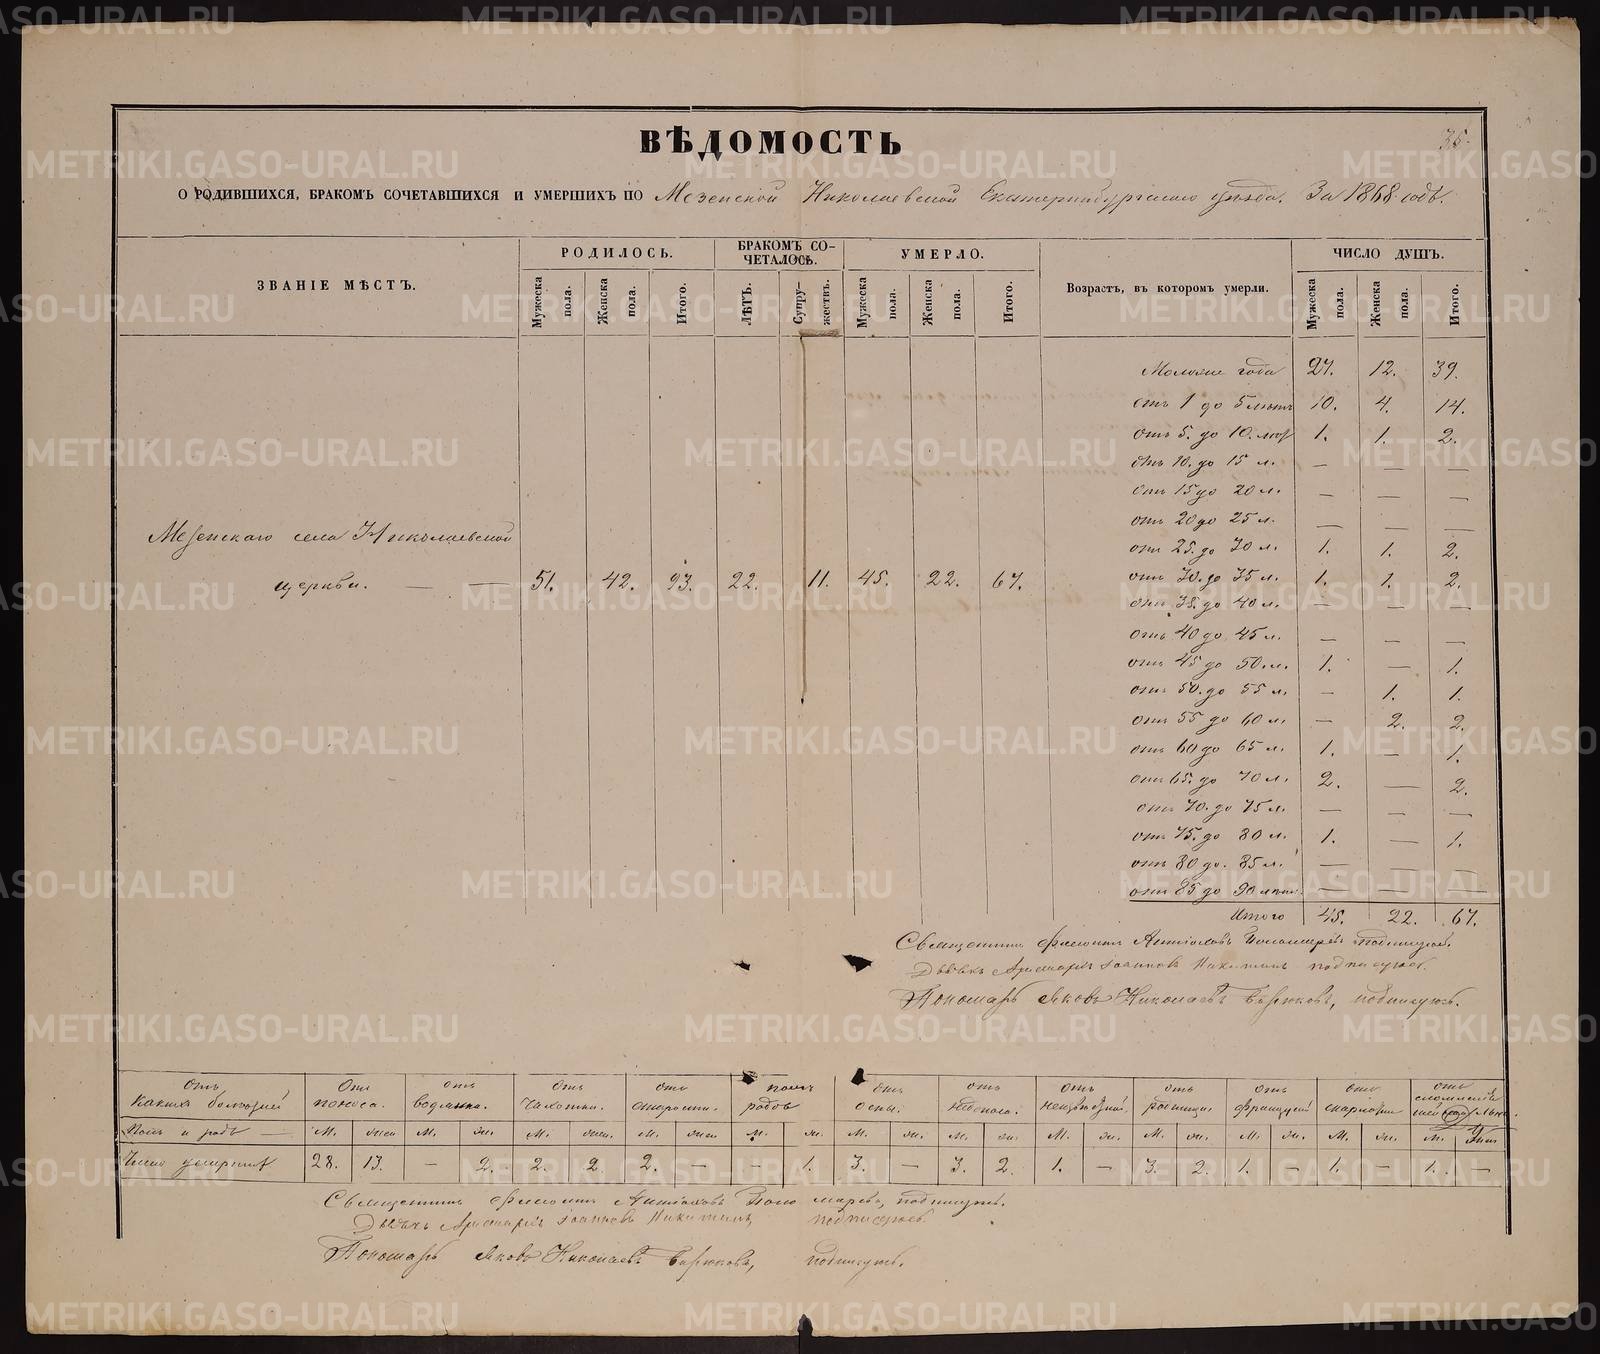 ВѢДОМОСТЬ
35.
О РОДИВШИХСЯ, БРАКОМЪ СОЧЕТАВШИХСЯ И УМЕРШИХЪ ПО Мезенской Николаевской Екатеринбургскаго уѣзда. За 1868 годъ.
ЗВАНІЕ МѢСТЪ.
РОДИЛОСЬ.
Мужеска пола.
Женска пола.
Итого.
БРАКОМЪ СО-
ЧЕТАЛОСЬ.
ЛѢТЪ.
Супру-
жествъ.
УМЕРЛО.
Мужеска пола.
Женска пола.
Итого.
Возрастъ, въ которомъ умерли.
ЧИСЛО ДУШЪ.
Мужеска пола.
Женска пола.
Итого.
Моложе года 27. 12. 39.
отъ 1 до 5 лѣтъ 10. 4. 14.
отъ 5. до 10. лѣт 1. 1. 2.
отъ 10. до 15 л. — — —
отъ 15 до 20 л. — — —
отъ 20 до 25 л. — — —
отъ 25. до 30 л. 1. 1. 2.
Мезенскаго села Николаевской
церкви. — — 51. 42. 93. 22. 11. 45. 22. 67.
отъ 30. до 35 л. 1. 1. 2.
отъ 35. до 40 л. — — —
отъ 40 до 45 л. — — —
отъ 45 до 50. л. 1. — 1.
отъ 50. до 55 л. — 1. 1.
отъ 55 до 60 л. — 2. 2.
отъ 60 до 65 л. 1. — 1.
отъ 65. до 70 л. 2. — 2.
отъ 70. до 75 л. — — —
отъ 75. до 80 л. 1. — 1.
отъ 80 до. 85 л. — — —
отъ 85 до 90 лѣтъ. — — —
Итого 45. 22. 67.
Священникъ Антіоховъ Пономаревъ подпишуюсь.
Іоанновъ Никитинъ подписуюсь.
Пономарь Яковъ Николаевъ Бирюковъ, подписуюсь.
Отъ какихъ болѣзней
Отъ поноса.
отъ водянки.
Отъ чахотки.
отъ старости.
родовъ
отъ оспы.
отъ
отъ неизвѣстной.
отъ родимца
отъ
отъ скарлатин
отъ
Полъ и родъ — м. жен м. ж. м. жен. м. жен м. ж. м. ж. м. ж. м. ж. м. ж. м. ж. м. ж. м.
Число умершихъ 28. 13. — 2. 2. 2. 2. — — 1. 3. — 3. 2. 1. — 3. 2. 1. — 1. — 1. —
Священникъ Антіоховъ Пономаревъ, подпишуюсь.
Іоанновъ Никитинъ, подписуюсь.
Пономарь Яковъ Николаевъ Бирюковъ, подписуюсь.
METRIKI.GASO-URAL.RU